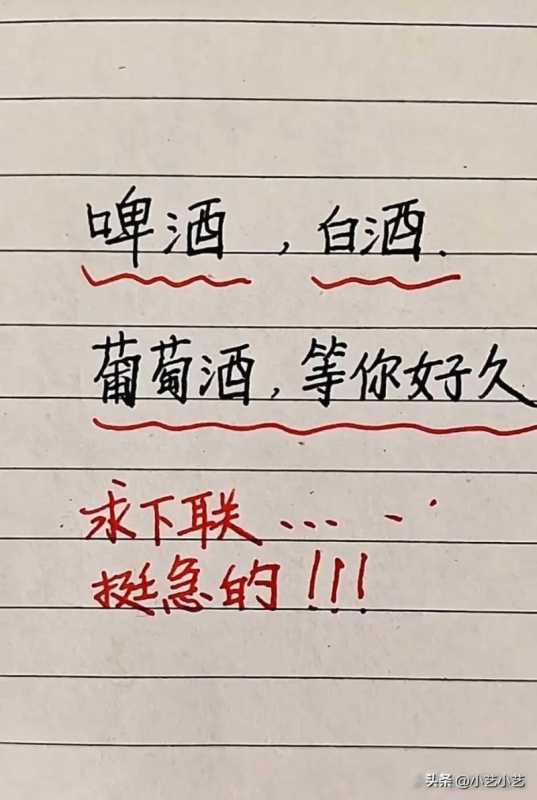 啤酒，白酒.
葡萄酒，等你好久
求下联......
挺急的!!!
头条 @小艺小艺